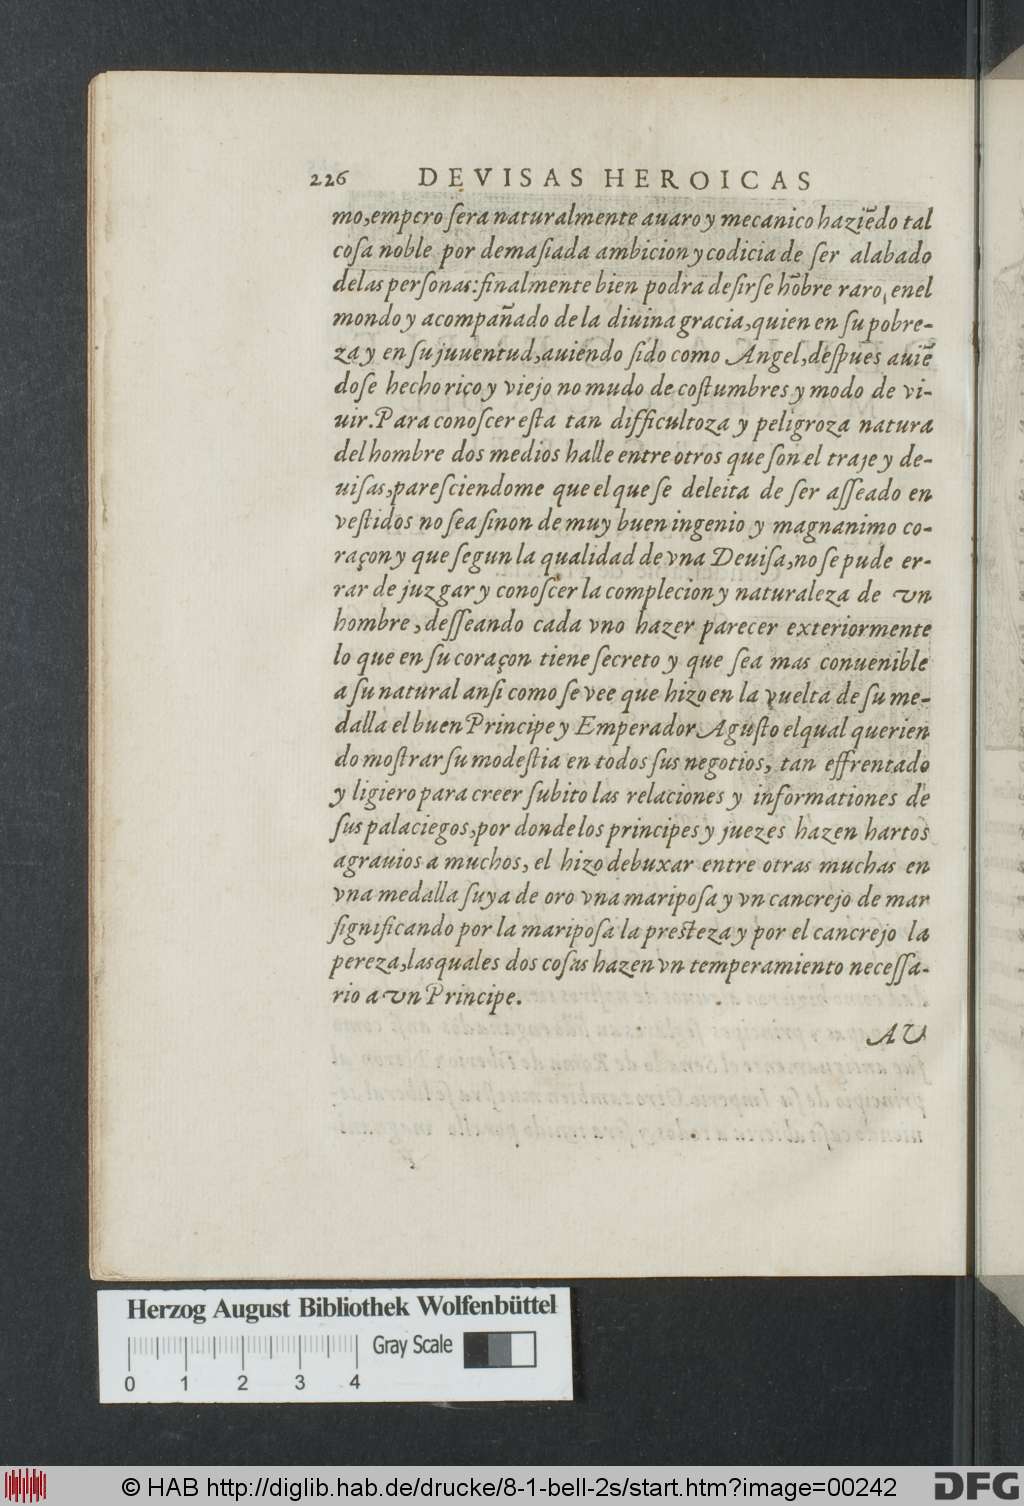 226 DEVISAS HEROICAS
mo,empero ſera naturalmente auaro y mecanico haziẽdo tal
coſa noble por demaſiada ambicion y codicia de ſer alabado
delas perſonas:finalmente bien podra deſirſe hõbre raro, enel
mondo y acompañado de la diuina gracia,quien en ſu pobre-
za y en ſu juuentud,auiendo ſido como Angel,deſpues auiẽ
doſe hecho rico y viejo no mudo de coſtumbres y modo de vi-
uir.Para conoſcer eſta tan difficultoza y peligroza natura
del hombre dos medios halle entre otros que ſon el traje y de-
uiſas,pareſciendome que el que ſe deleita de ſer aſſeado en
veſtidos no ſea ſinon de muy buen ingenio y magnanimo co-
raçon y que ſegun la qualidad de vna Deuiſa,no ſe pude er-
rar de juzgar y conoſcer la complecion y naturaleza de vn
hombre,deſſeando cada vno hazer parecer exteriormente
lo que en ſu coraçon tiene ſecreto y que ſea mas conuenible
a ſu natural anſi como ſe vee que hizo en la vuelta de ſu me-
dalla el buen Principe y Emperador Aguſto el qual querien
do moſtrar ſu modeſtia en todos ſus negotios, tan effrentado
y ligiero para creer ſubito las relaciones y informationes de
ſus palaciegos,por donde los principes y juezes hazen hartos
agrauios a muchos, el hizo debuxar entre otras muchas en
vna medalla ſuya de oro vna maripoſa y vn cancrejo de mar
ſignificando por la maripoſa la preſteza y por el cancrejo la
pereza,lasquales dos coſas hazen vn temperamiento neceſſa-
rio a vn Principe.
AU
Herzog August Bibliothek Wolfenbüttel
Gray Scale
0 1 2 3 4
© HAB http://diglib.hab.de/drucke/8-1-bell-2s/start.htm?image=00242
DFG